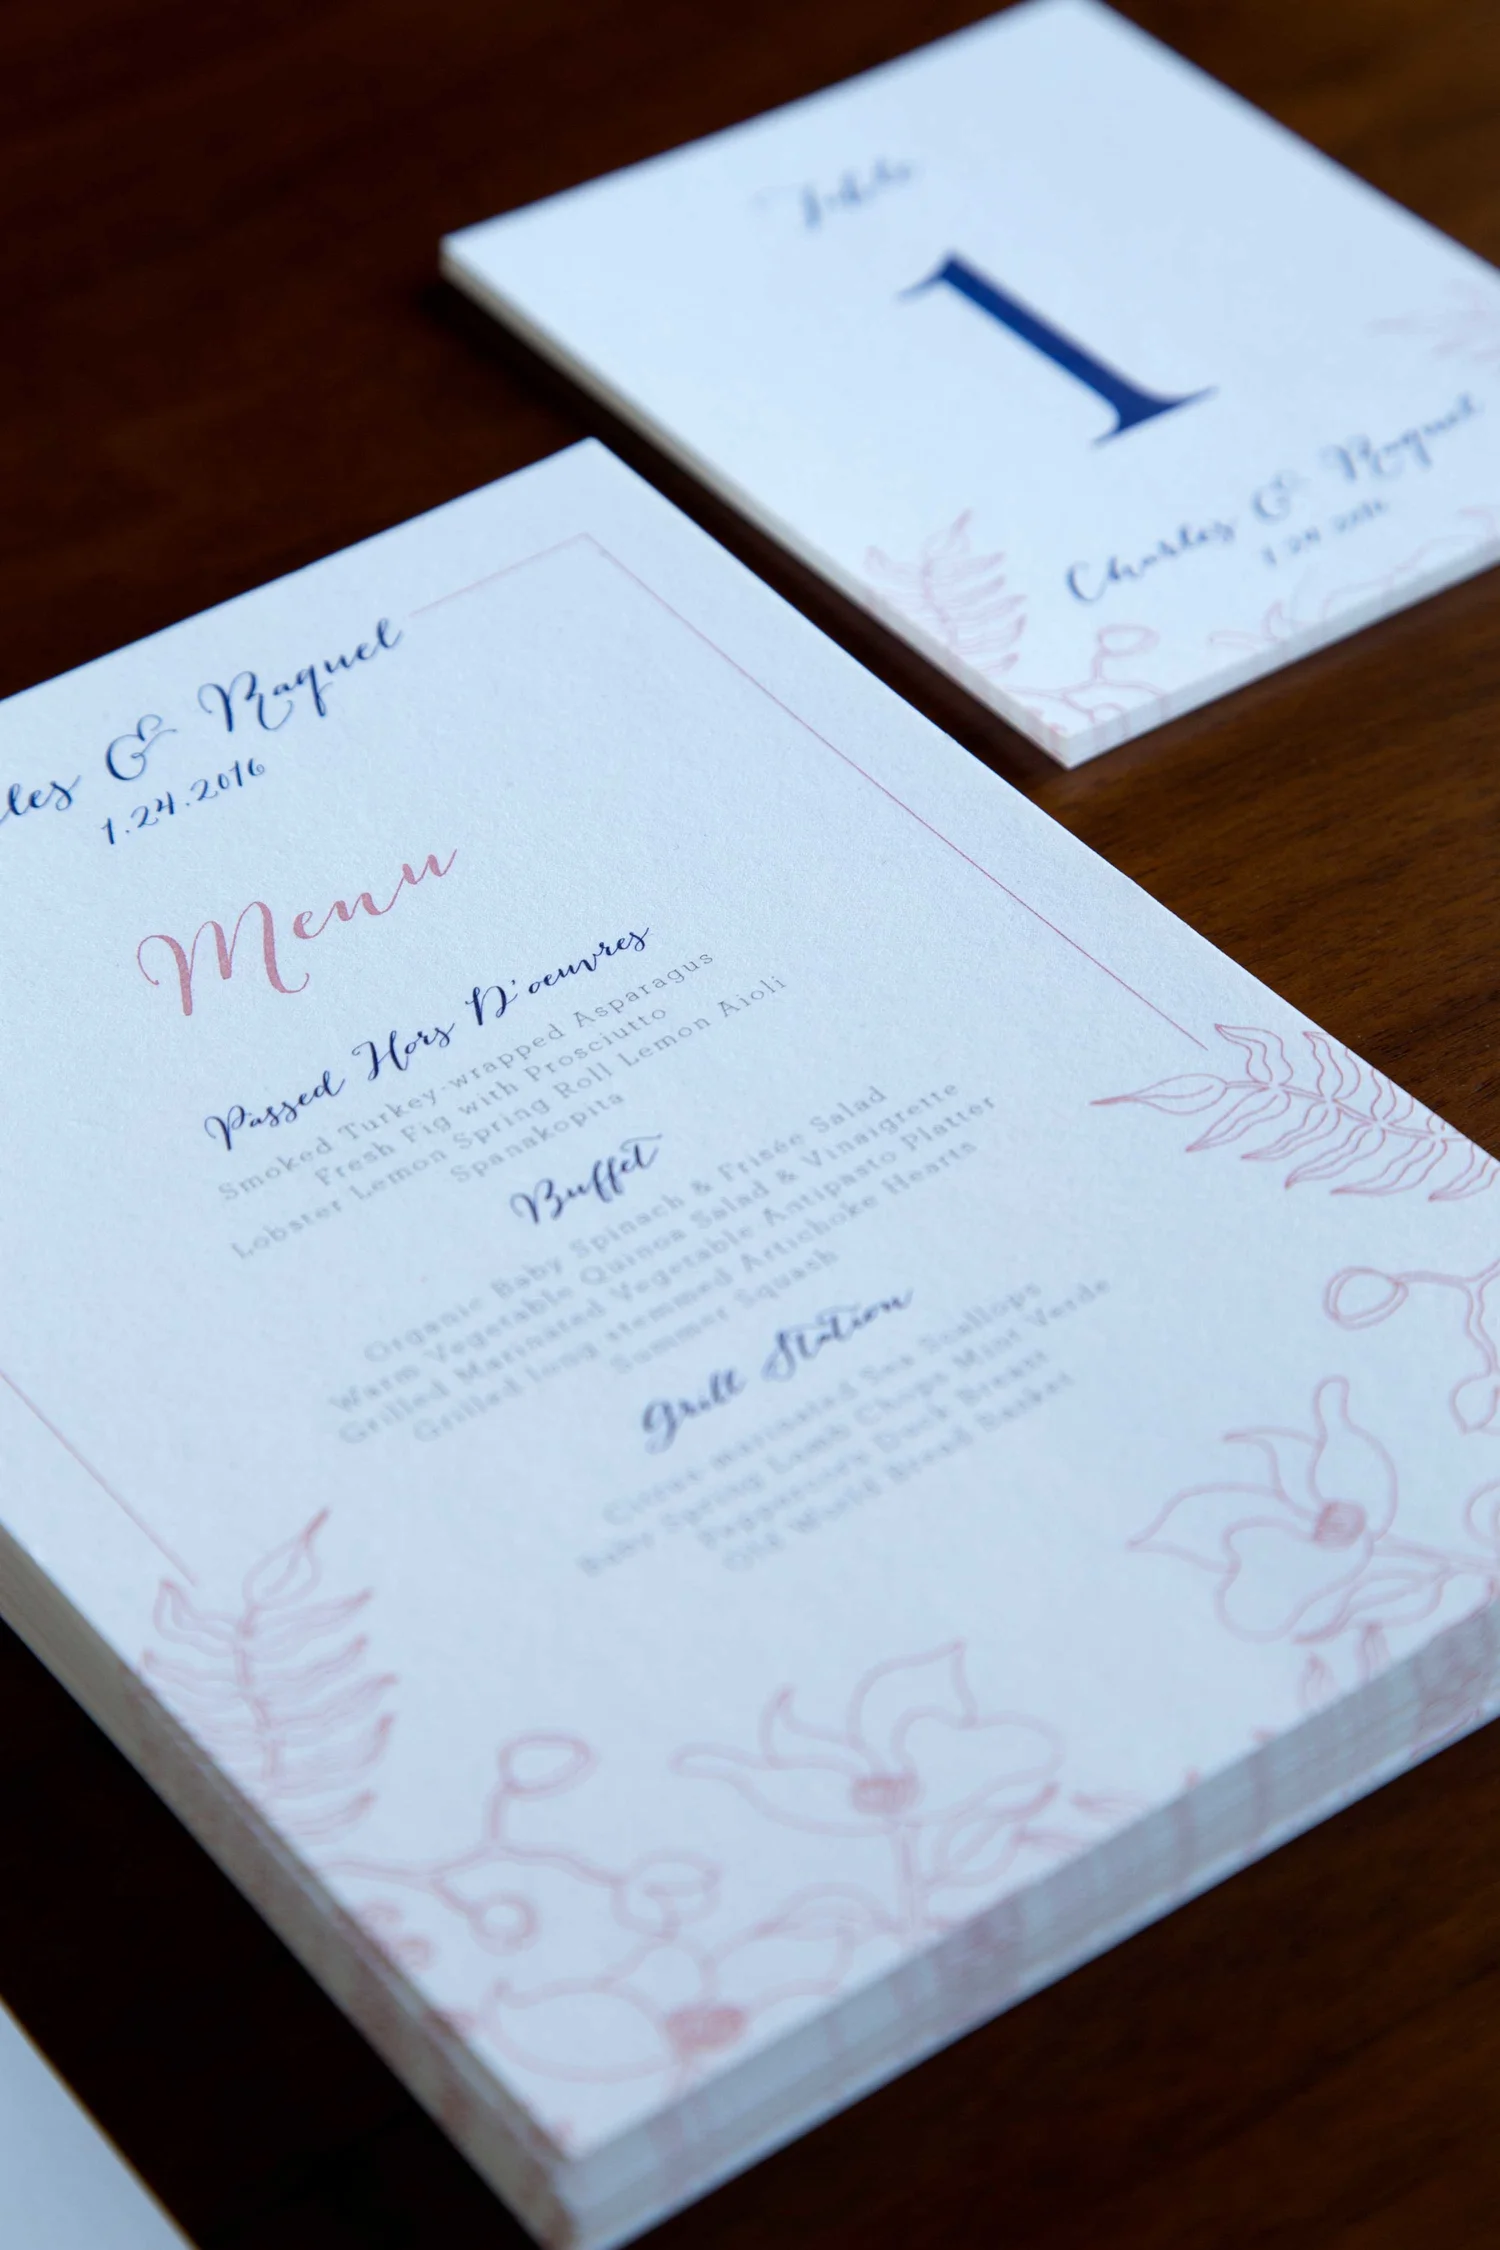 Table
1
Charles & Raquel
1.24.2016
les & Raquel
1.24.2016
Menu
Passed Hors D'oeuvres
Smoked Turkey-wrapped Asparagus
Fresh Fig with Prosciutto
Lobster Lemon Spring Roll Lemon Aioli
Spanakopita
Buffet
Organic Baby Spinach & Frisée Salad
Warm Vegetable Quinoa Salad & Vinaigrette
Grilled Marinated Vegetable Antipasto Platter
Grilled long stemmed Artichoke Hearts
Summer Squash
Grill Station
Citrus marinated Sea Scallops
Baby Spring Lamb Chops Mint Verde
Peppercorn Duck Breast
Old World Bread Basket